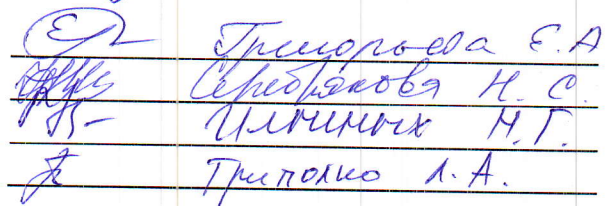 Григорьева Е.А
Серебрякова Н.С.
Ильиных Н.Г.
Триполко Л.А.